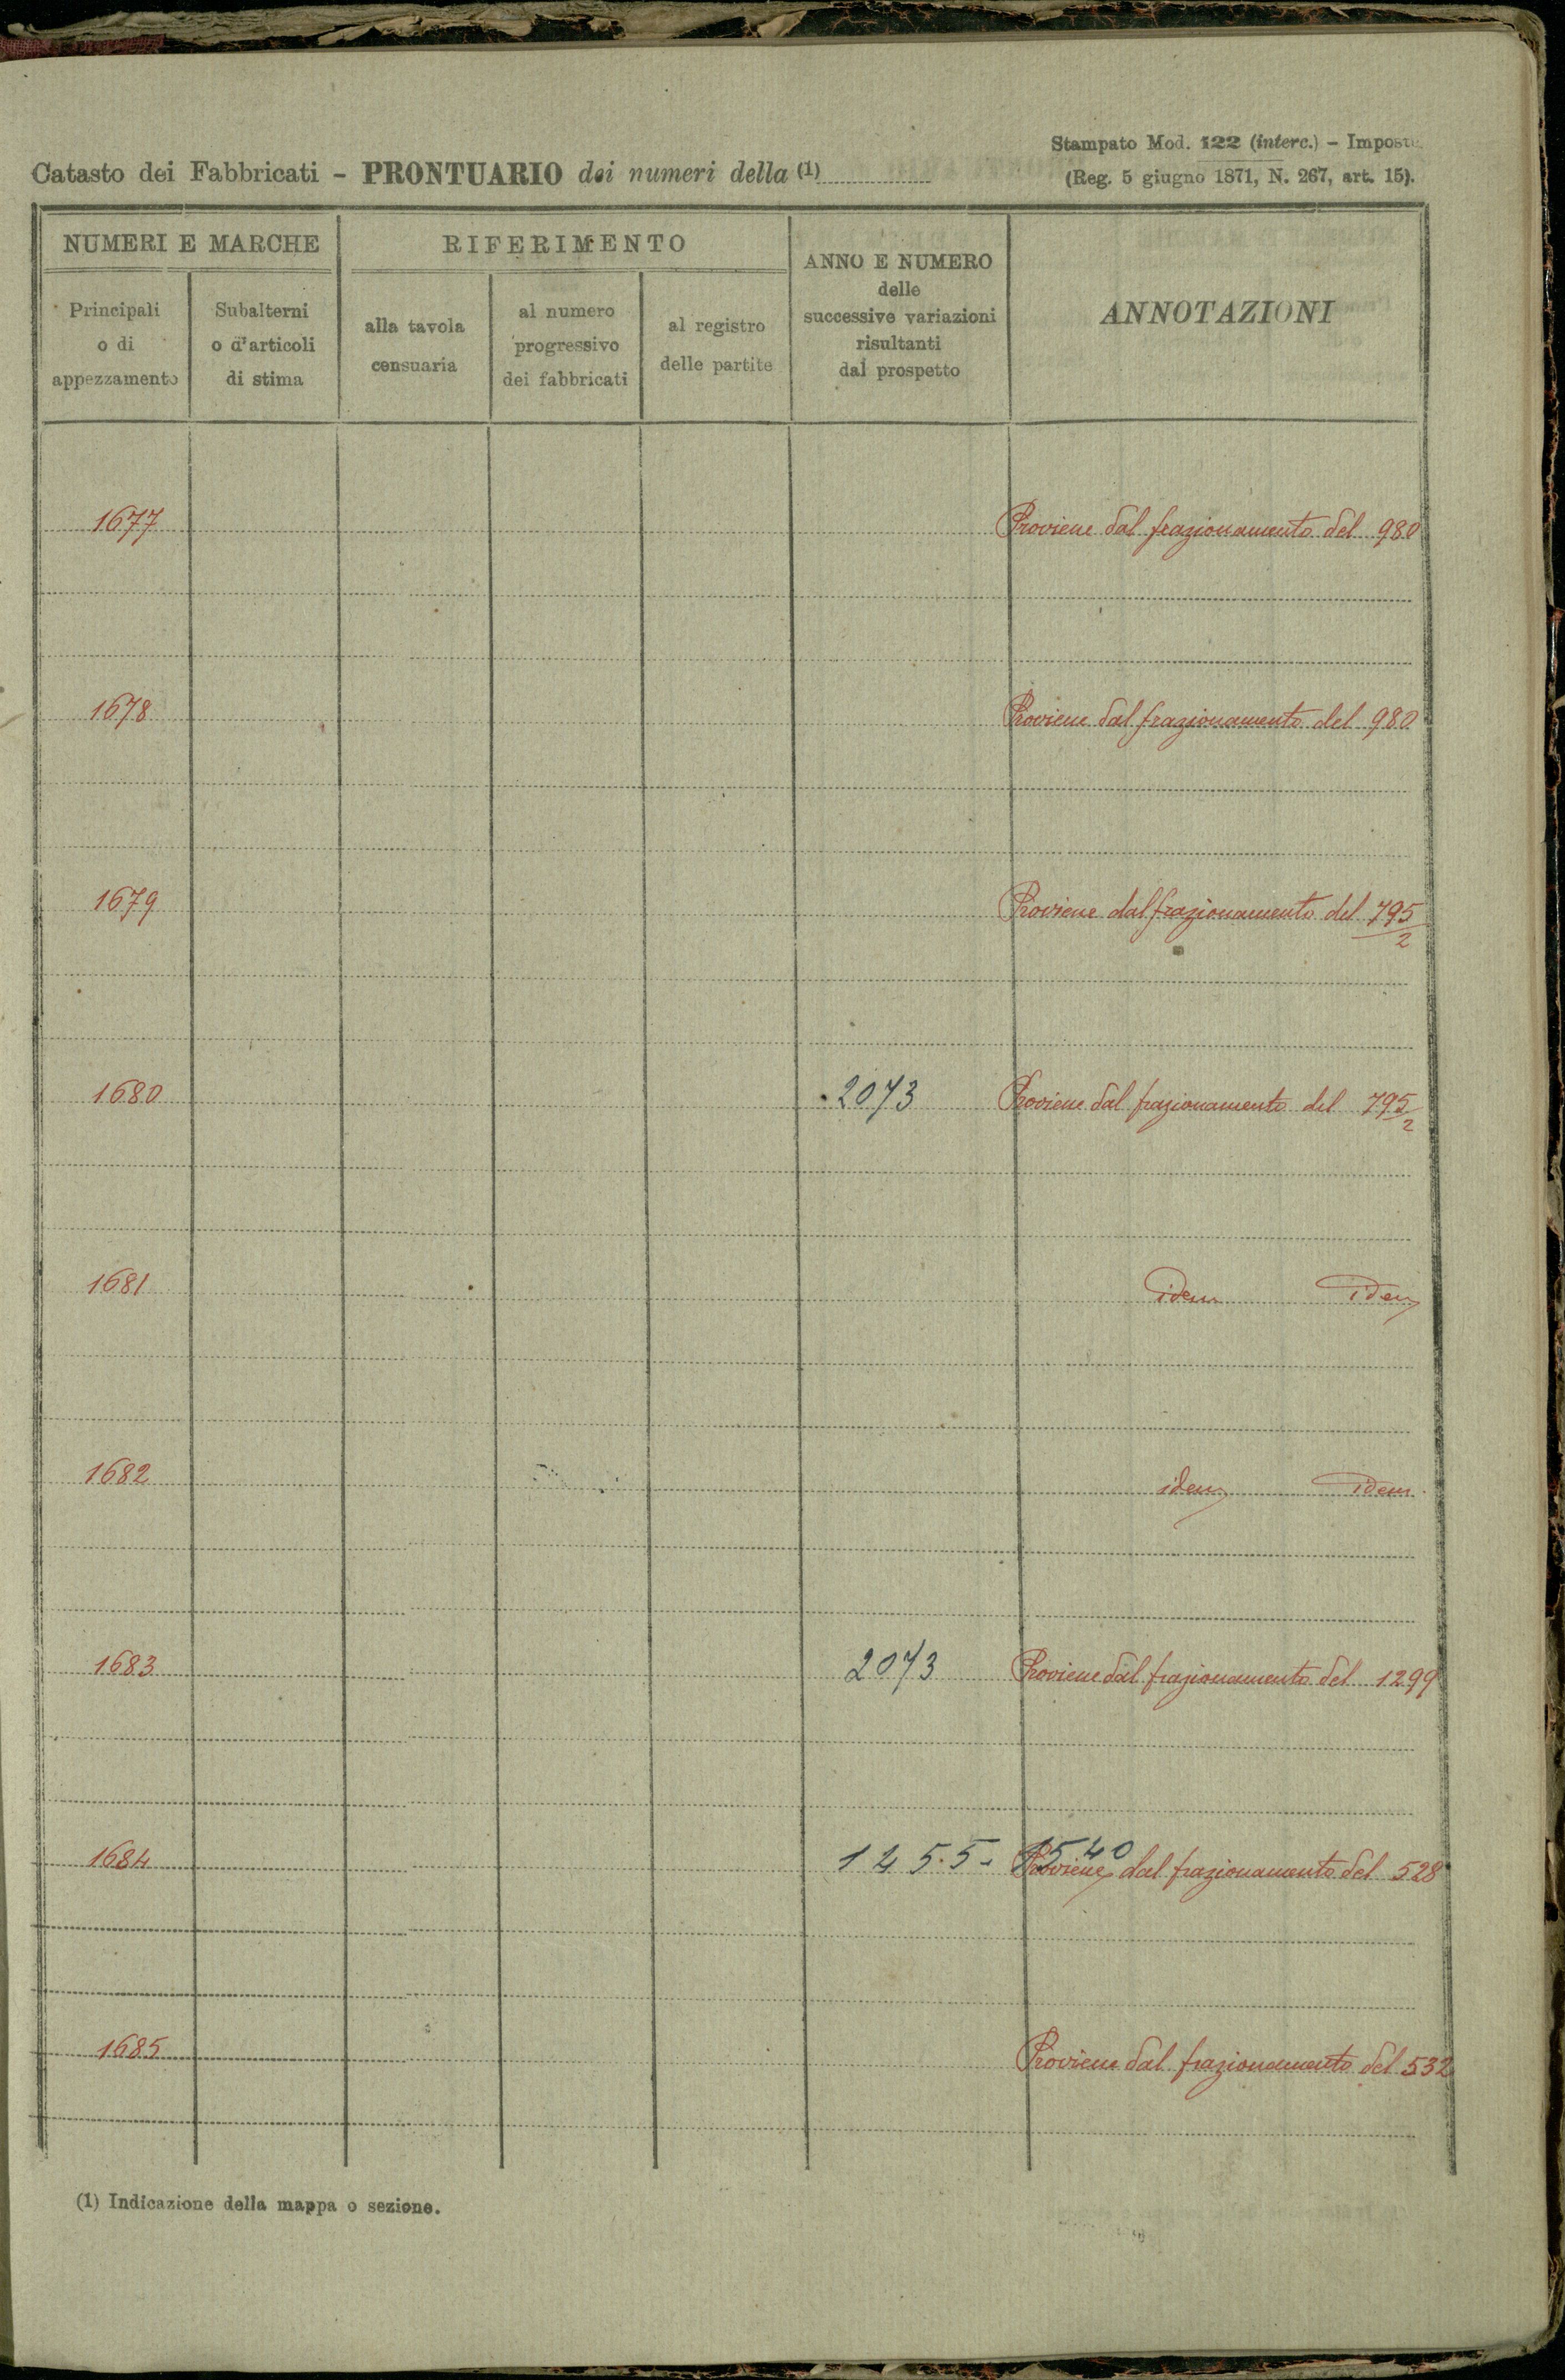 Stampato Mod. 122 (interc.) - Imposte
Catasto dei Fabbricati - PRONTUARIO dei numeri della (1)
(Reg. 5 giugno 1871, N. 267, art. 15).
NUMERI E MARCHE
RIFERIMENTO
ANNO E NUMERO
delle
successive variazioni
risultanti
dal prospetto
ANNOTAZIONI
Principali
o di
appezzamento
Subalterni
o d'articoli
di stima
alla tavola
censuaria
al numero
progressivo
dei fabbricati
al registro
delle partite
1677 Proviene dal frazionamento del 980
1678 Proviene dal frazionamento del 980
1679 Proviene dal frazionamento del 795/2
1680 2073 Proviene dal frazionamento del 795/2
1681 idem idem
1682 idem idem
1683 2073 Proviene dal frazionamento del 1299
1684 1455- 1540 Proviene dal frazionamento del 528
1685 Proviene dal frazionamento del 532
(1) Indicazione della mappa o sezione.